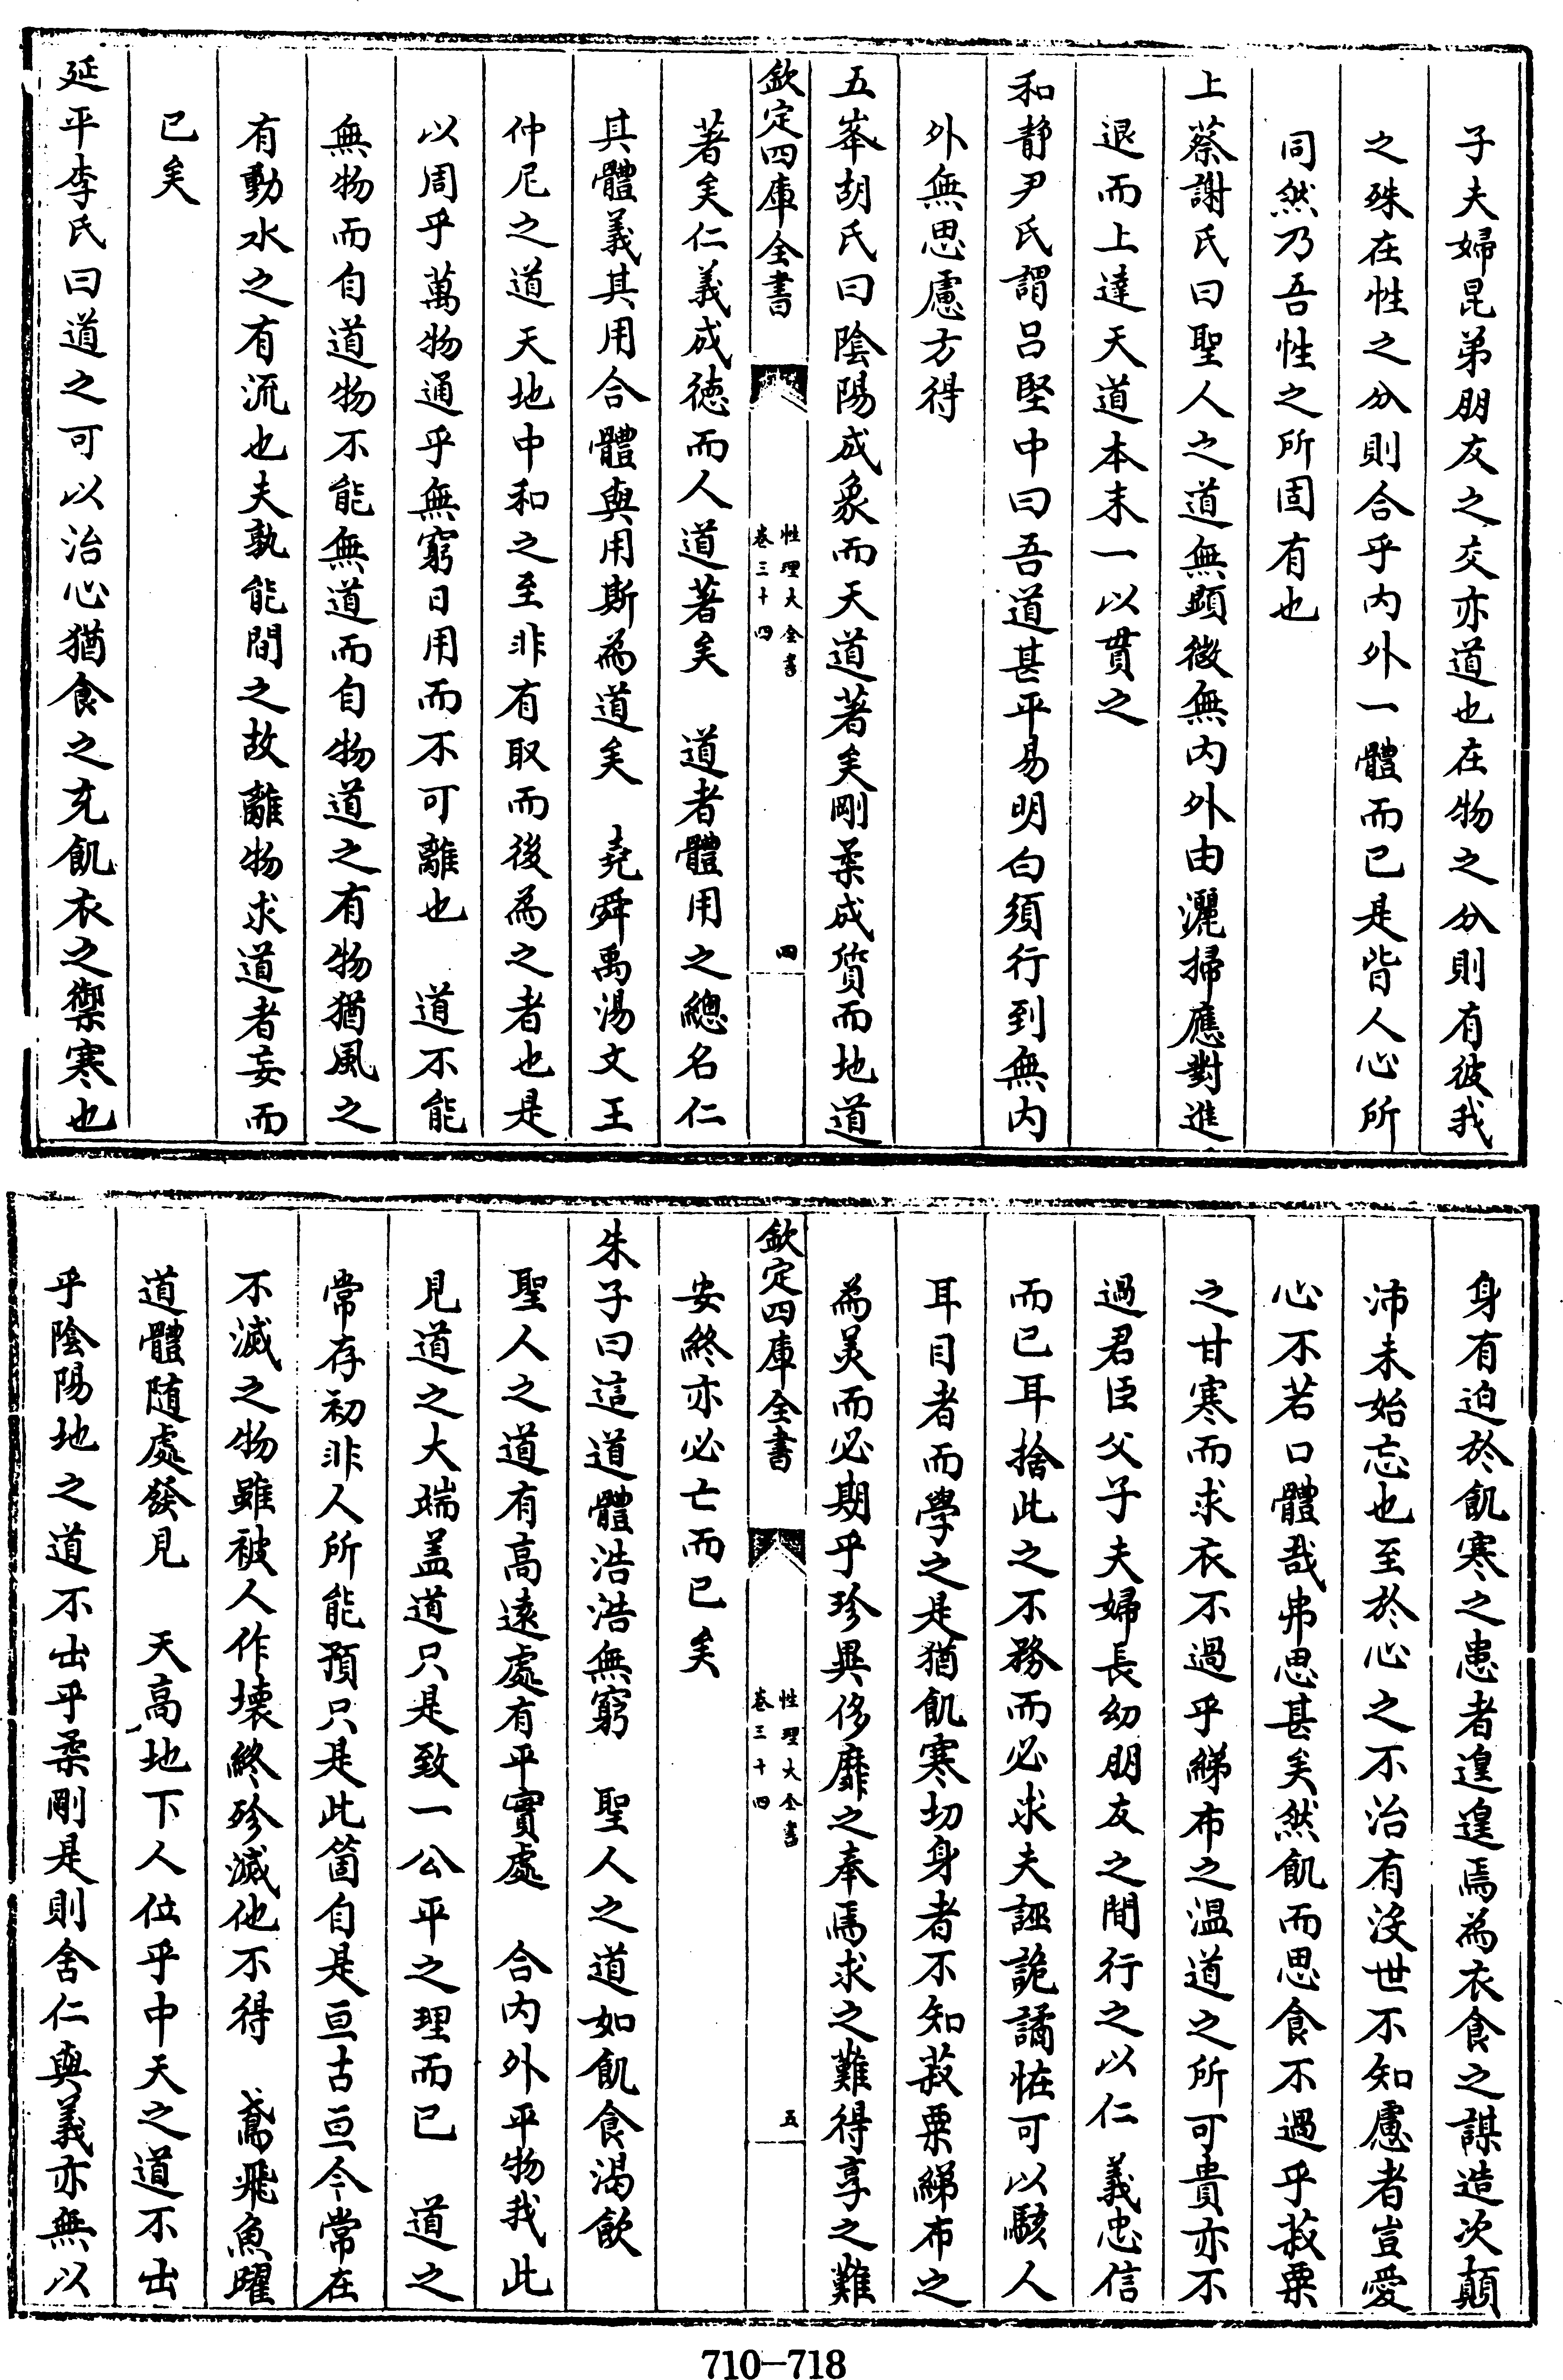 子夫婦昆弟朋友之交亦道也在物之分則有彼我
之殊在性之分則合乎内外一體而已是皆人心所
同然乃吾性之所固有也
上蔡謝氏曰聖人之道無顯微無内外由灑掃應對進
退而上達天道本末一以貫之
和靜尹氏謂吕堅中曰吾道甚平易明白須行到無内
外無思慮方得
五峯胡氏曰陰陽成象而天道著矣剛柔成質而地道
欽定四庫全書
性理大全書
卷三十四
四
著矣仁義成徳而人道著矣　道者體用之總名仁
其體義其用合體與用斯為道矣　堯舜禹湯文王
仲尼之道天地中和之至非有取而後為之者也是
以周乎萬物通乎無窮日用而不可離也　道不能
無物而自道物不能無道而自物道之有物猶風之
有動水之有流也夫孰能間之故離物求道者妄而
已矣
延平李氏曰道之可以治心猶食之充飢衣之禦寒也
身有迫於飢寒之患者遑遑焉為衣食之謀造次顛
沛未始忘也至於心之不治有沒世不知慮者豈愛
心不若口體哉弗思甚矣然飢而思食不過乎菽粟
之甘寒而求衣不過乎綈布之温道之所可貴亦不
過君臣父子夫婦長幼朋友之間行之以仁義忠信
而已耳捨此之不務而必求夫誣詭譎怪可以駭人
耳目者而學之是猶飢寒切身者不知菽粟綈布之
為美而必期乎珍異侈靡之奉焉求之難得享之難
欽定四庫全書
性理大全書
卷三十四
五
安終亦必亡而已矣
朱子曰這道體浩浩無窮　聖人之道如飢食渴飲
聖人之道有高遠處有平實處　合内外平物我此
見道之大端盖道只是致一公平之理而已　道之
常存初非人所能預只是此箇自是亘古亘今常在
不滅之物雖被人作壊終殄滅他不得　鳶飛魚躍
道體随處發見　天高地下人位乎中天之道不出
乎陰陽地之道不出乎柔剛是則舍仁與義亦無以
710-718